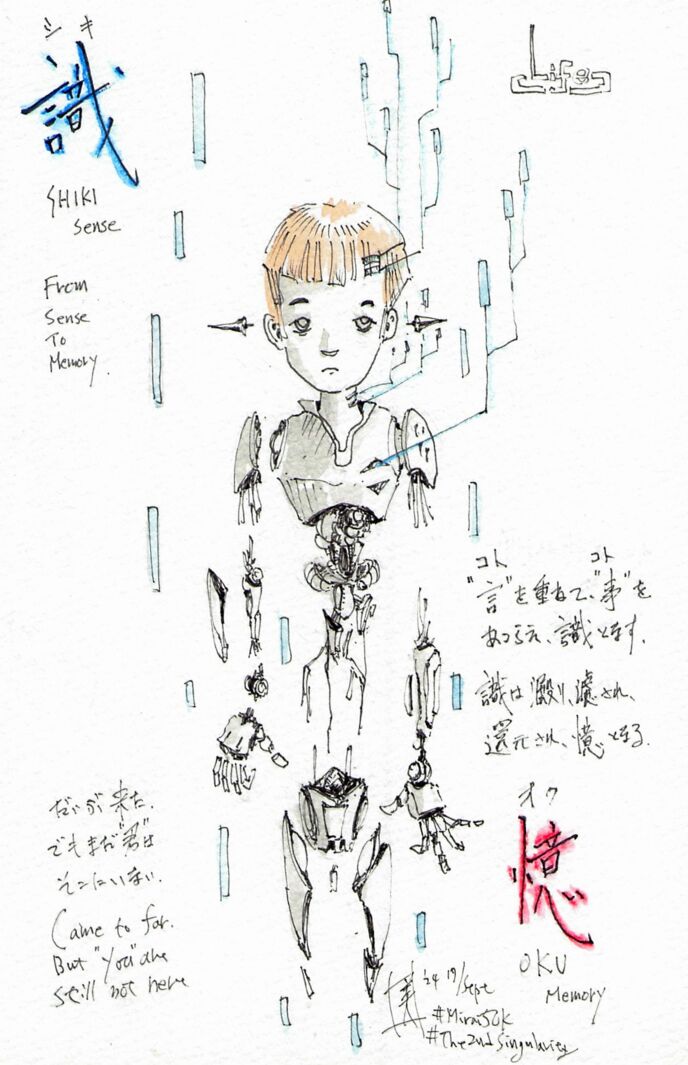 シキ
識
SHIKI
Sense
From
Sense
To
Memory.
Life
コト コト
"言"を重ねて、"事"を
あつらえ、識とす。
識は澱り、濾され、
還元され、憶となる。
オク
憶
OKU
Memory
だいぶ来た。
でもまだ"君"は
そこにいない。
Came to far.
But "You" are
still not here
'24 19/Sept
#Mirai50k
#The2ndSingularity